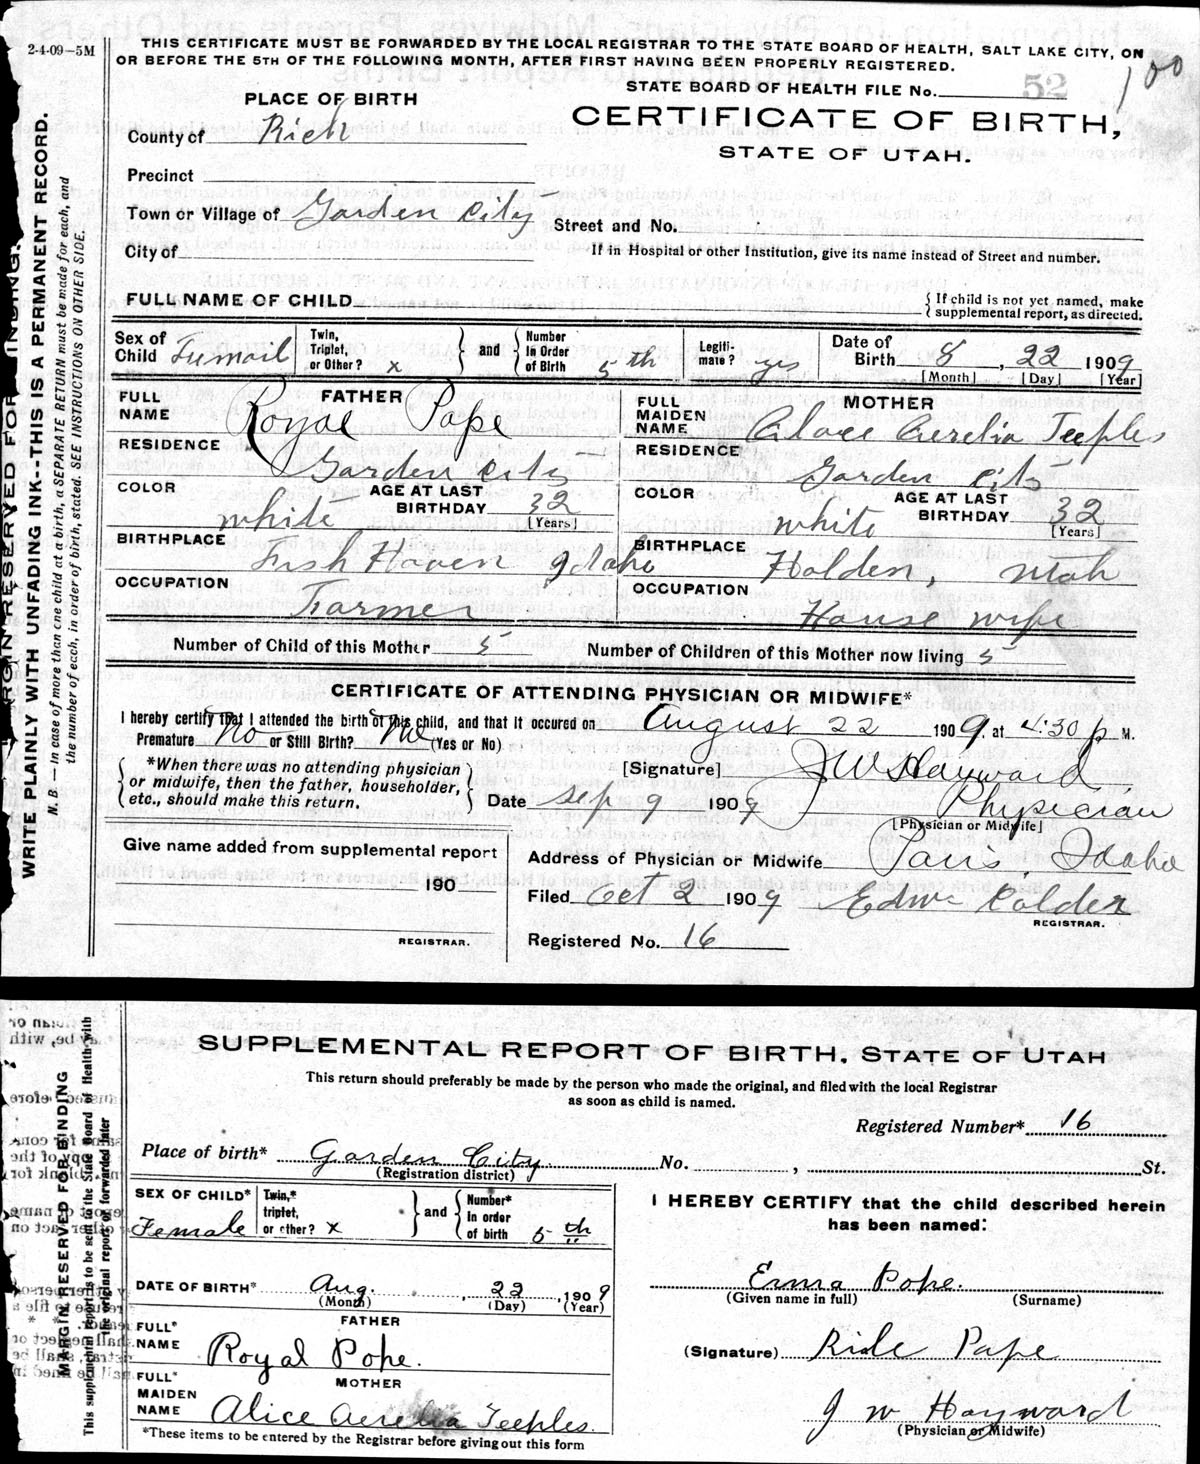 2-4-09—5M
THIS CERTIFICATE MUST BE FORWARDED BY THE LOCAL REGISTRAR TO THE STATE BOARD OF HEALTH, SALT LAKE CITY, ON
OR BEFORE THE 5TH OF THE FOLLOWING MONTH, AFTER FIRST HAVING BEEN PROPERLY REGISTERED.
100
STATE BOARD OF HEALTH FILE No. 52
PLACE OF BIRTH
CERTIFICATE OF BIRTH,
STATE OF UTAH.
County of Rich
Precinct
Town or Village of Garden City
Street and No.
City of
If in Hospital or other Institution, give its name instead of Street and number.
FULL NAME OF CHILD
{ If child is not yet named, make
supplemental report, as directed.
Sex of Child Femail
Twin, Triplet, or Other? x
and
Number In Order of Birth 5th
Legiti-mate? yes
Date of Birth 8, 22 1909
[Month] [Day] [Year]
FATHER
FULL NAME Royal Pope
RESIDENCE Garden City
COLOR white
AGE AT LAST BIRTHDAY 32
[Years]
BIRTHPLACE Fish Haven Idaho
OCCUPATION Farmer
MOTHER
FULL MAIDEN NAME Alace Aerelia Teeples
RESIDENCE Garden City
COLOR white
AGE AT LAST BIRTHDAY 32
[Years]
BIRTHPLACE Holden, Utah
OCCUPATION House wife
Number of Child of this Mother 5
Number of Children of this Mother now living 5
CERTIFICATE OF ATTENDING PHYSICIAN OR MIDWIFE*
I hereby certify that I attended the birth of this child, and that it occured on August 22 1909. at 4:30 p M.
Premature No or Still Birth? No (Yes or No)
*When there was no attending physician
or midwife, then the father, householder,
etc., should make this return.
[Signature] J W Hayward
Date Sep 9 1909
Physician
[Physician or Midwife]
Give name added from supplemental report
190
REGISTRAR.
Address of Physician or Midwife Paris, Idaho
Filed Oct 2 1909
REGISTRAR.
Registered No. 16
MARGIN RESERVED FOR BINDING.
WRITE PLAINLY WITH UNFADING INK--THIS IS A PERMANENT RECORD.
N. B. — In case of more than one child at a birth, a SEPARATE RETURN must be made for each, and
the number of each, in order of birth, stated. SEE INSTRUCTIONS ON OTHER SIDE.
SUPPLEMENTAL REPORT OF BIRTH, STATE OF UTAH
This return should preferably be made by the person who made the original, and filed with the local Registrar
as soon as child is named.
Registered Number* 16
Place of birth* Garden City No. , St.
(Registration district)
SEX OF CHILD* Female
Twin,* triplet, or other? x
and
Number* In order of birth 5th
DATE OF BIRTH* Aug. , 22 , 1909
(Month) (Day) (Year)
FATHER
FULL* NAME Royal Pope.
MOTHER
FULL* MAIDEN NAME Alice Aerelia Teeples.
*These items to be entered by the Registrar before giving out this form
I HEREBY CERTIFY that the child described herein
has been named:
Erma Pope.
(Given name in full) (Surname)
(Signature) Pope
J W Hayward
(Physician or Midwife)
MARGIN RESERVED FOR BINDING
This supplemental report is to be sent to the State Board of Health with
the original report, or forwarded later